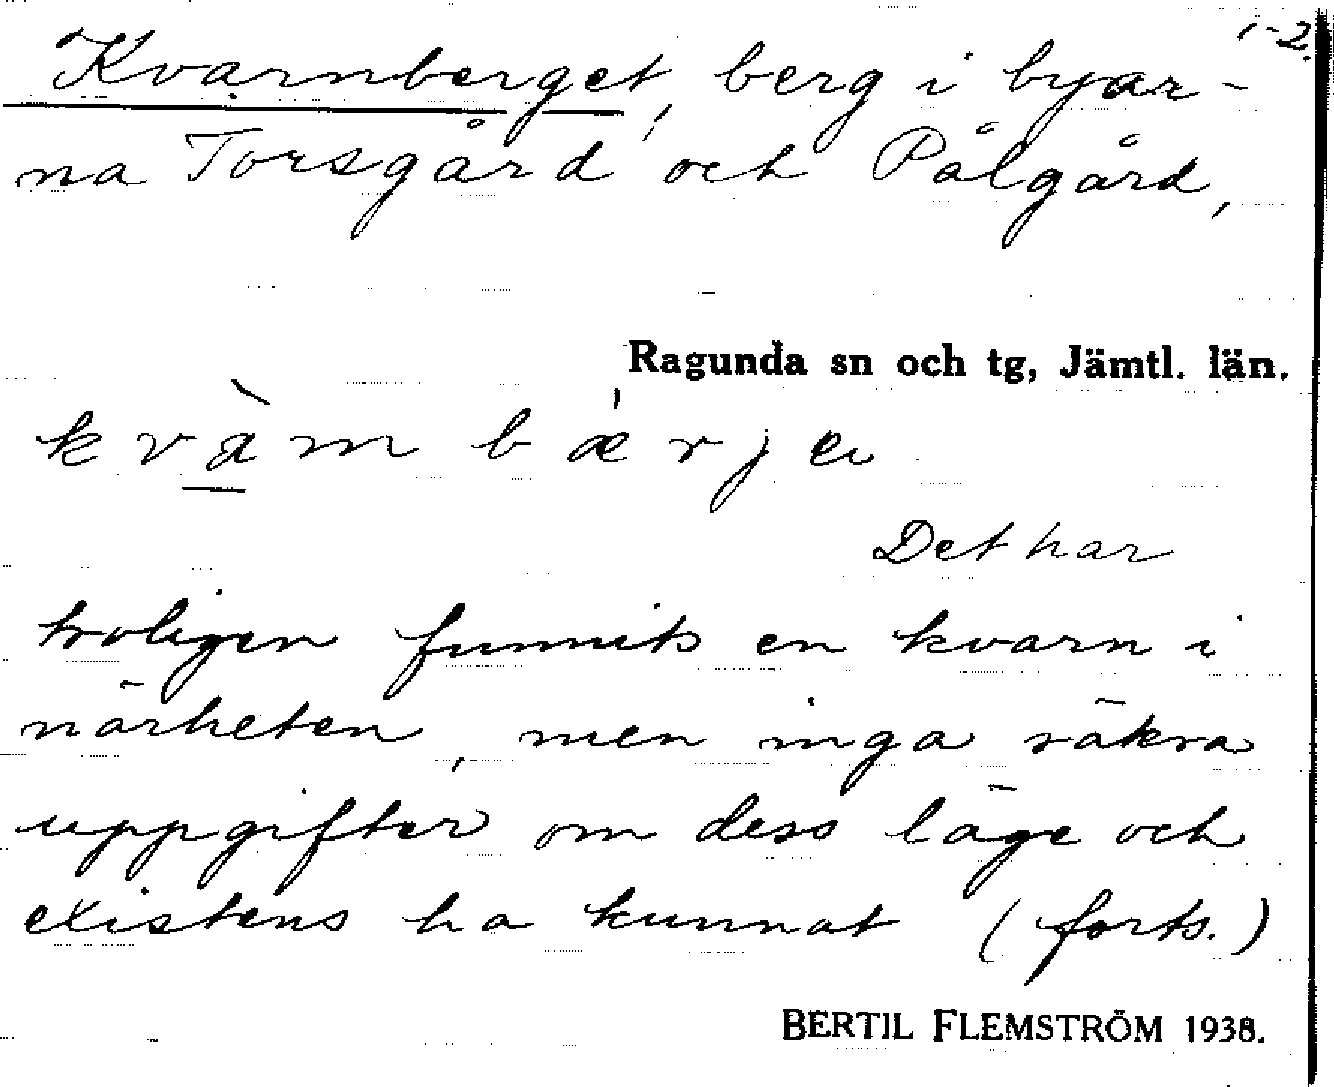 1-2.
Kvarnberget, berg i byar-
na Torsgård och Pålgård,
Ragunda sn och tg, Jämtl. län.
kvàmbærjeı
Det har
troligen funnits en kvarn i
närheten, men inga säkra
uppgifter om dess läge och
existens ha kunnat (forts.)
BERTIL FLEMSTRÖM 1938.